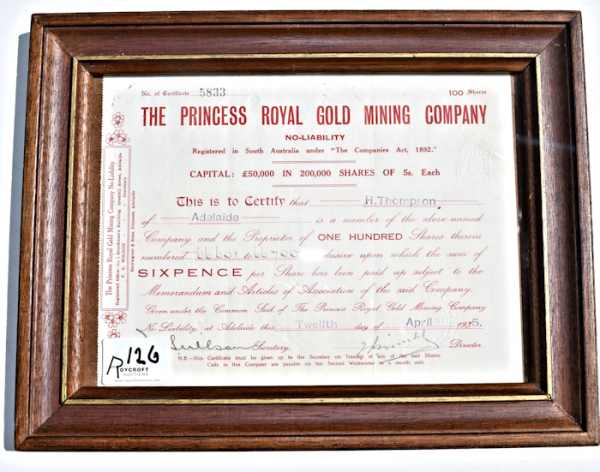 No. of Certificate 5833 100 Shares
THE PRINCESS ROYAL GOLD MINING COMPANY
NO-LIABILITY
Registered in South Australia under "The Companies Act, 1892."
CAPITAL: £50,000 IN 200,000 SHARES OF 5s. Each
This is to Certify that H.Thompson
of Adelaide is a member of the above-named
Company and the Proprietor of ONE HUNDRED Shares therein
numbered to inclusive upon which the sum of
SIXPENCE per Share has been paid up subject to the
Memorandum and Articles of Association of the said Company.
Given under the Common Seal of The Princess Royal Gold Mining Company
No Liability, at Adelaide this Twelfth day of April 1935.
Secretary. Director.
N.B.—This Certificate must be given up to the Secretary on Transfer of any of the said Shares.
Calls in this Company are payable on the Second Wednesday of a month only.
The Princess Royal Gold Mining Company No-Liability
126
ROYCROFT
AUCTIONS